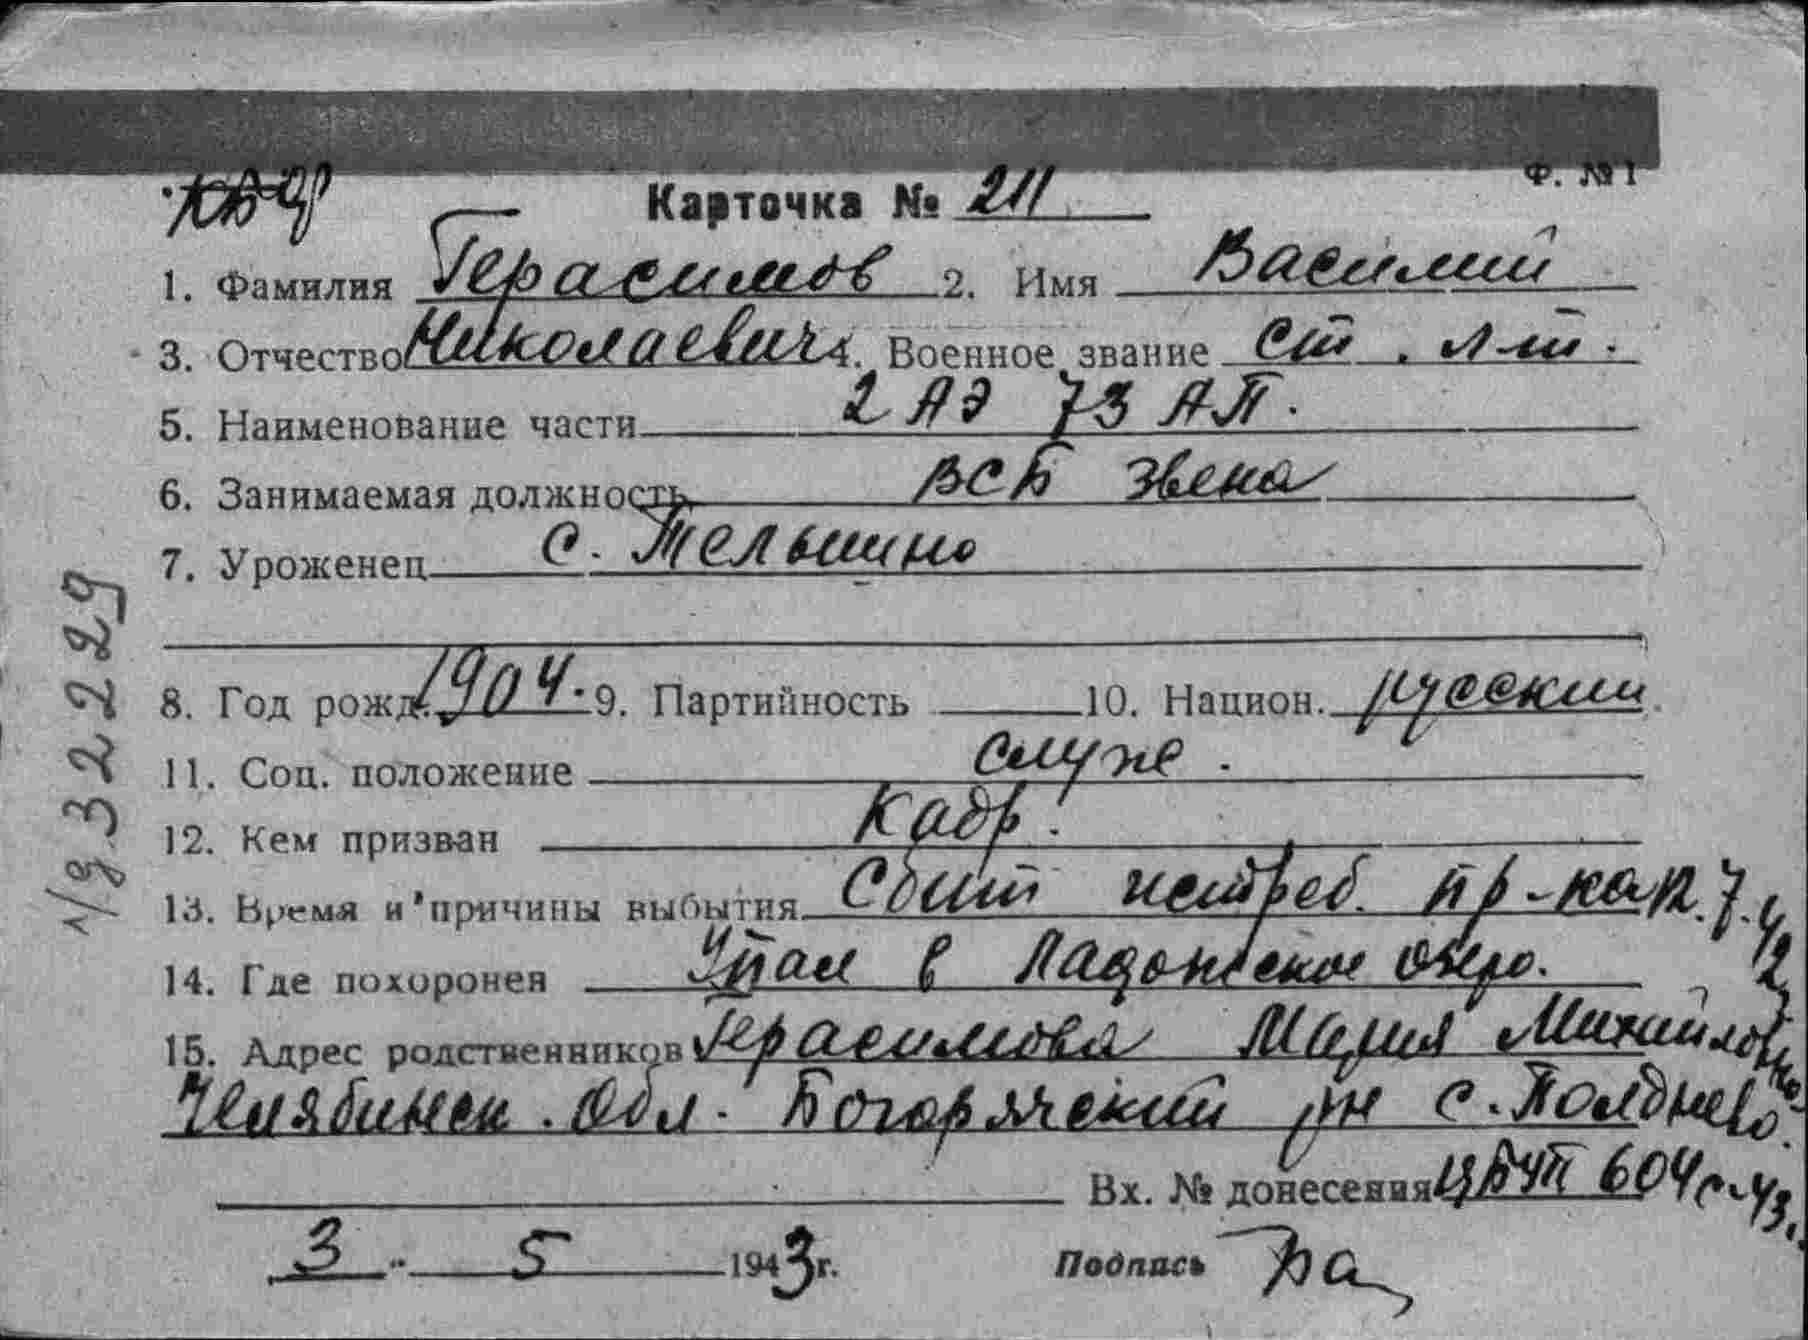 КБФ
Ф. № 1
Карточка № 211
1. Фамилия Герасимов 2. Имя Василий
3. Отчество Николаевич 4. Военное звание ст. л-т.
5. Наименование части 2 АЭ 73 АП.
6. Занимаемая должность ВСБ звена
7. Уроженец с. Тельшино
8. Год рожд. 1904. 9. Партийность 10. Национ. русский
11. Соц. положение служ.
12. Кем призван Кадр.
13. Время и причины выбытия Сбит истреб. пр-ка 12.7.42
14. Где похоронен Упал в Ладожское озеро.
15. Адрес родственников Герасимова Мария Михайловна
Челябинск. обл. Богарякский рн с. Полднево.
Вх. № донесения ЦБУП 604с-43.
3 5 1943 г. Подпись
32229